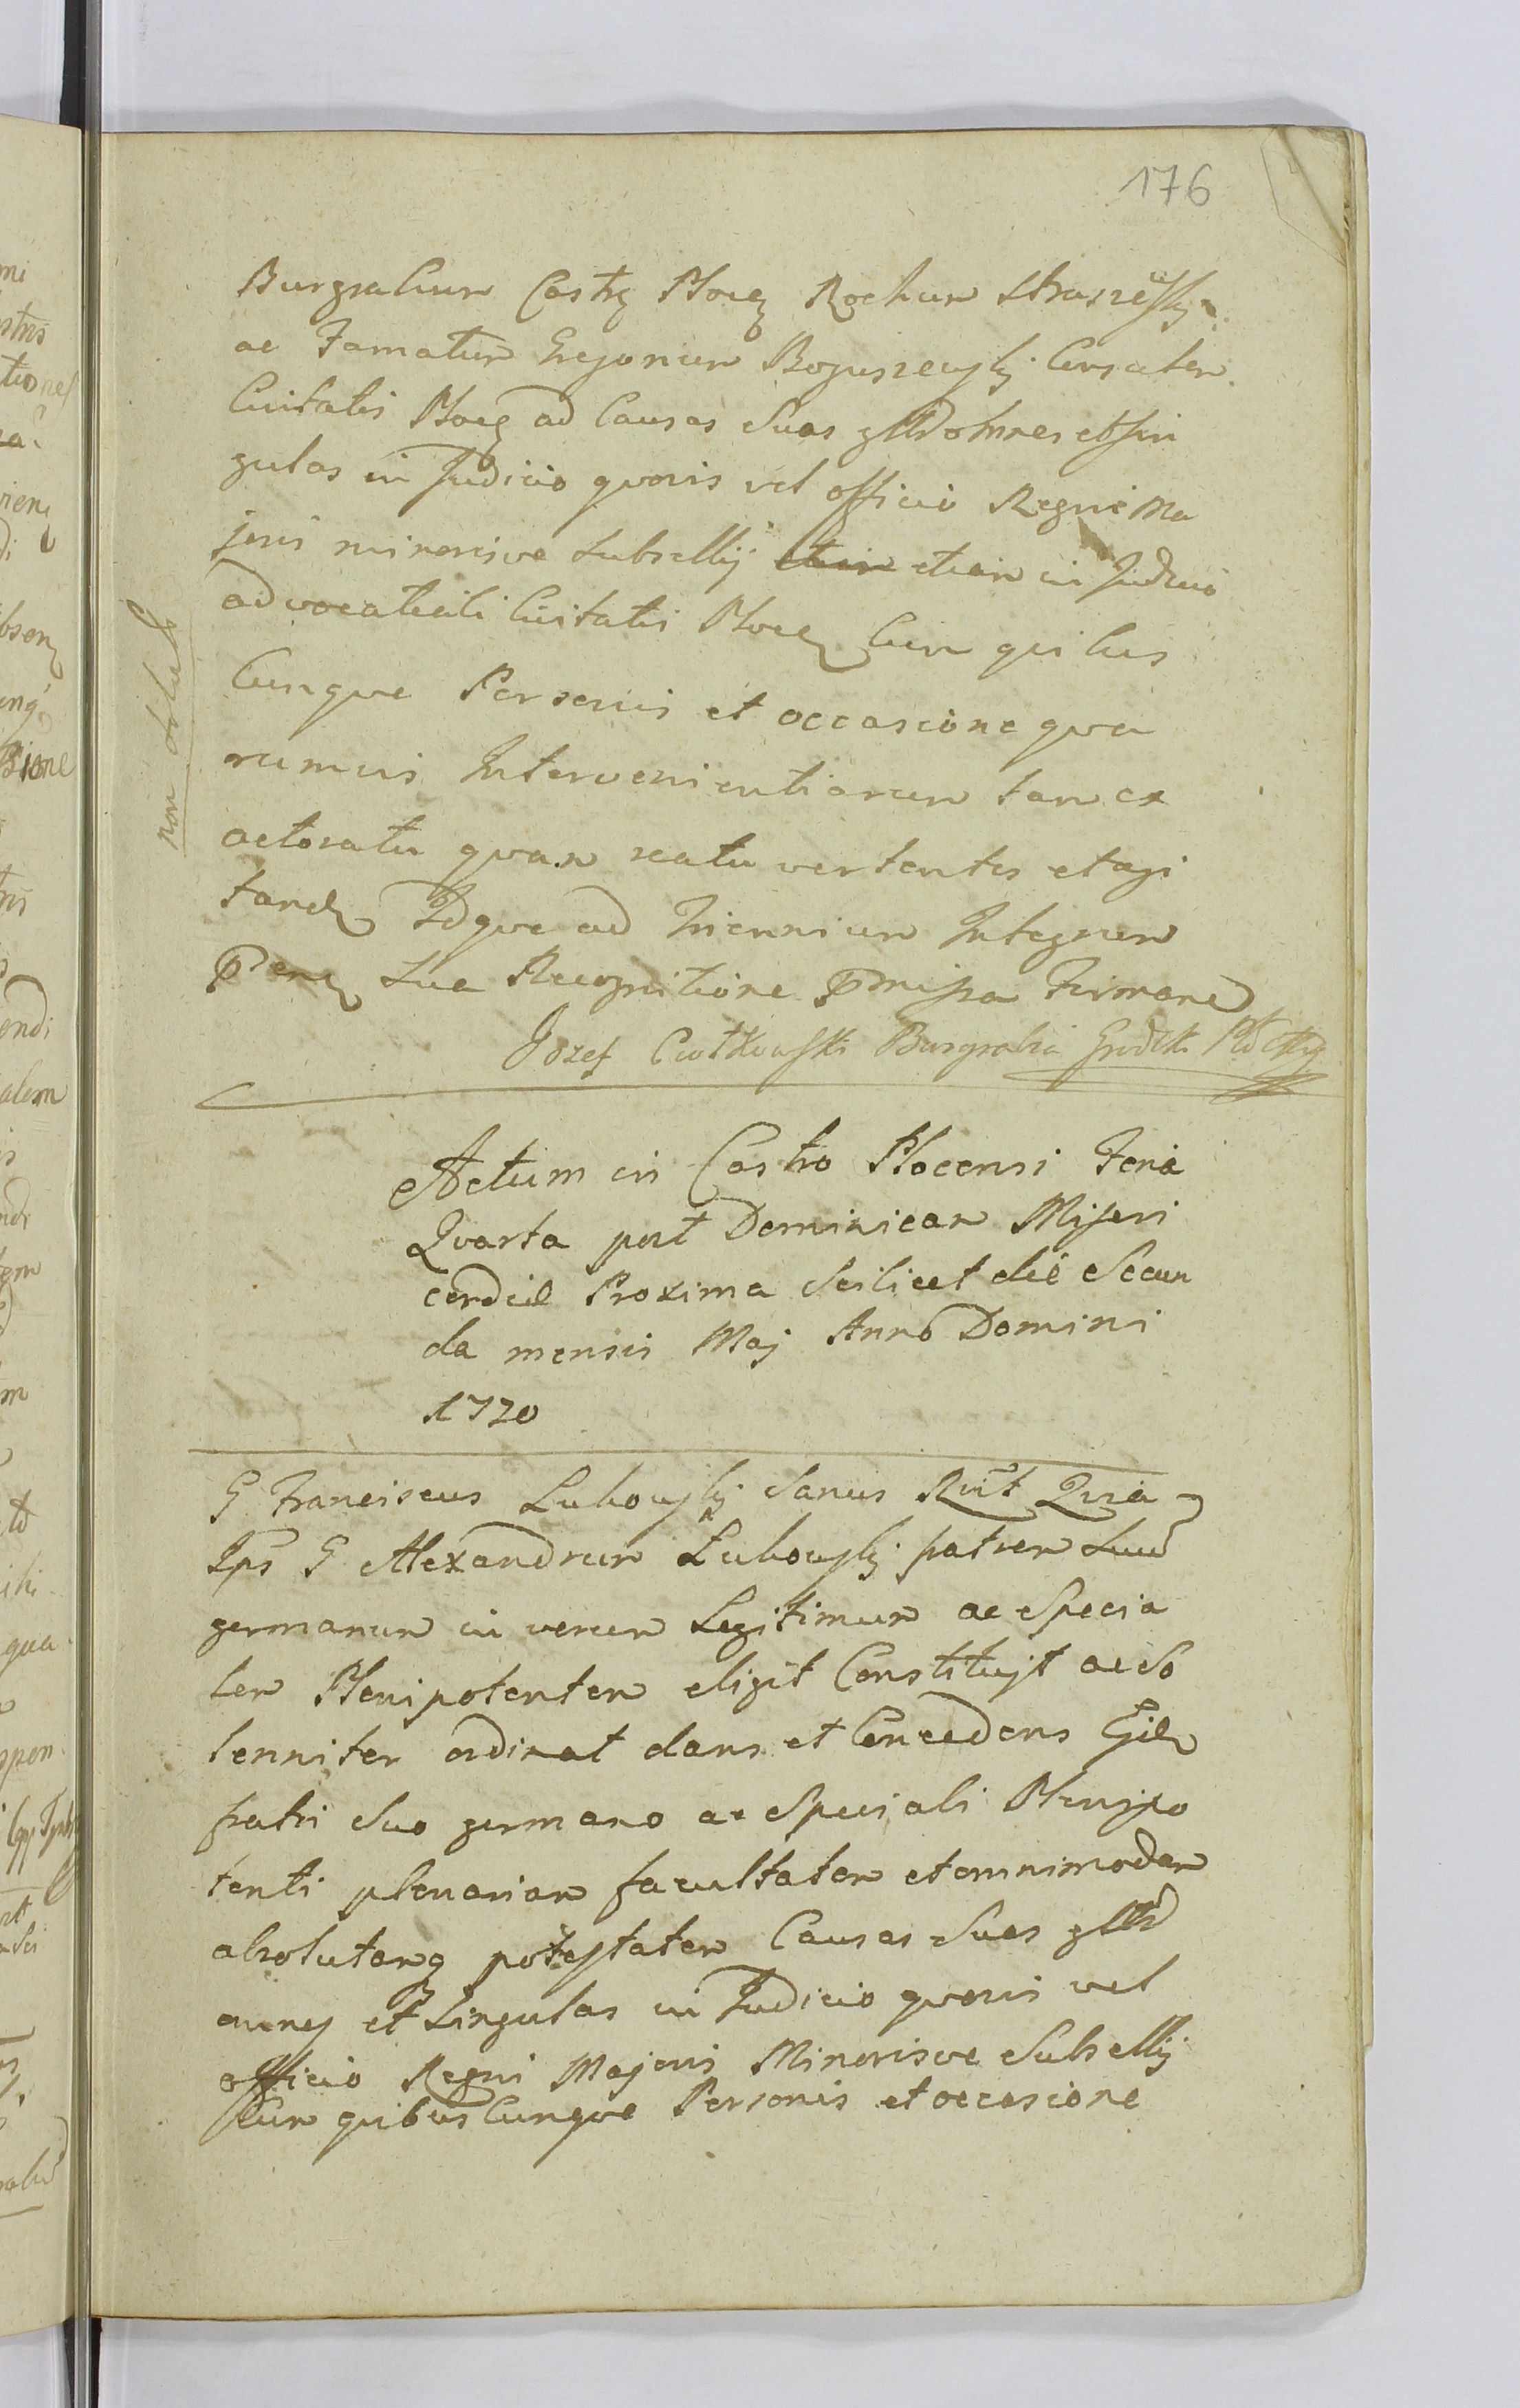 176
Burgrabium Castri Plocen Rochum
ac Famatum Gregorium Boguszewsky Consulem
Civitatis Plocen ad Causas Suas gnlr omnes et sin
gulas in Judicio quovis vel officio Regni Ma
joris minorisve Subsellij etiam etiam in Judicio
advocatiali Civitatis Plocen Cum quibus
Cunque Personis et occasione qua
rumvis Intervenientiarum tam ex
actoratu quam reatu vertentes et agi
tanden Idque ad Triennium Integrum
Pnen Sua Recognitione pmissa Firmare
Jozef Ciotkowski Burgrabia Grodzki Płocky
non
Actum in Castro Plocensi Feria
Quarta post Dominicam Miseri
cordiæ Proxima Scilicet die Secun
da mensis Maj Anno Domini
1720
G Franciscus Lubowsky Sanus Rnit Quia
Ips G Alexandrum Lubowsky fatrem Suum
germanum in verum Legitimum ac Specia
lem Plenipotentem eligit Constituit ac So
lenniter ordinat dans et Concedens Eidem
fratri Suo germano ac Speciali Plenipo
tenti plenariam facultatem et omnimodam
absolutamq potestatem Causas Suas gnlr
omnes et Singulas in Judicio quovis vel
officio Regni Majoris Minorisve Subsellij
Cum quibus Cunque Personis et occasione